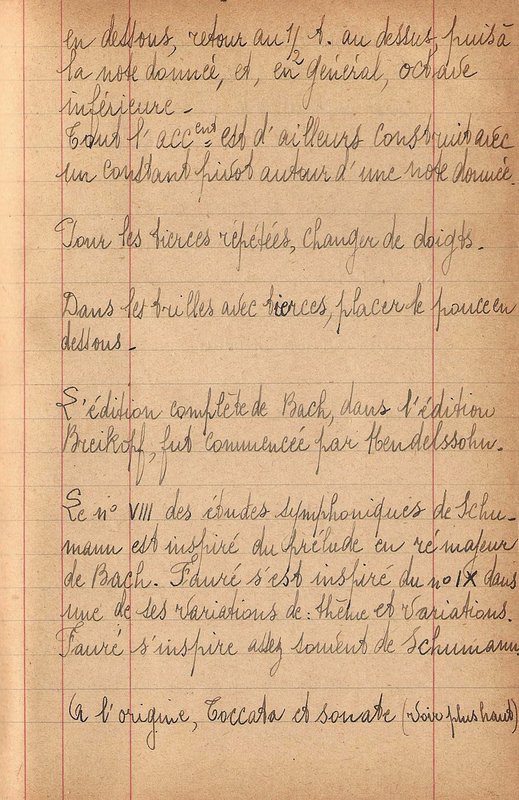 en dessous, retour au 1/2 t. au dessus, puis à
la note donnée, et, en général, octave
inférieure.
Tout l'acc.ent est d'ailleurs construit avec
un constant pivot autour d'une note donnée.
Pour les tierces répétées, changer de doigts.
Dans les trilles avec tierces, placer le pouce en
dessous.
L'édition complète de Bach, dans l'édition
Breikoff, fut commencée par Mendelssohn.
Le n° VIII des études symphoniques de Schu-
mann est inspiré du prélude en ré majeur
de Bach. Fauré s'est inspiré du n° IX dans
une de ses variations de: thème et variations.
Fauré s'inspire assez souvent de Schumann
A l'origine, Toccata et sonate (voir plus haut)